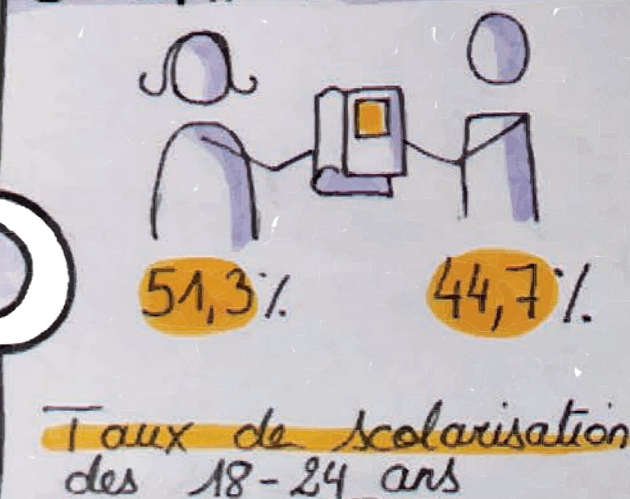 51,3% 44,7%
Taux de scolarisation
des 18-24 ans